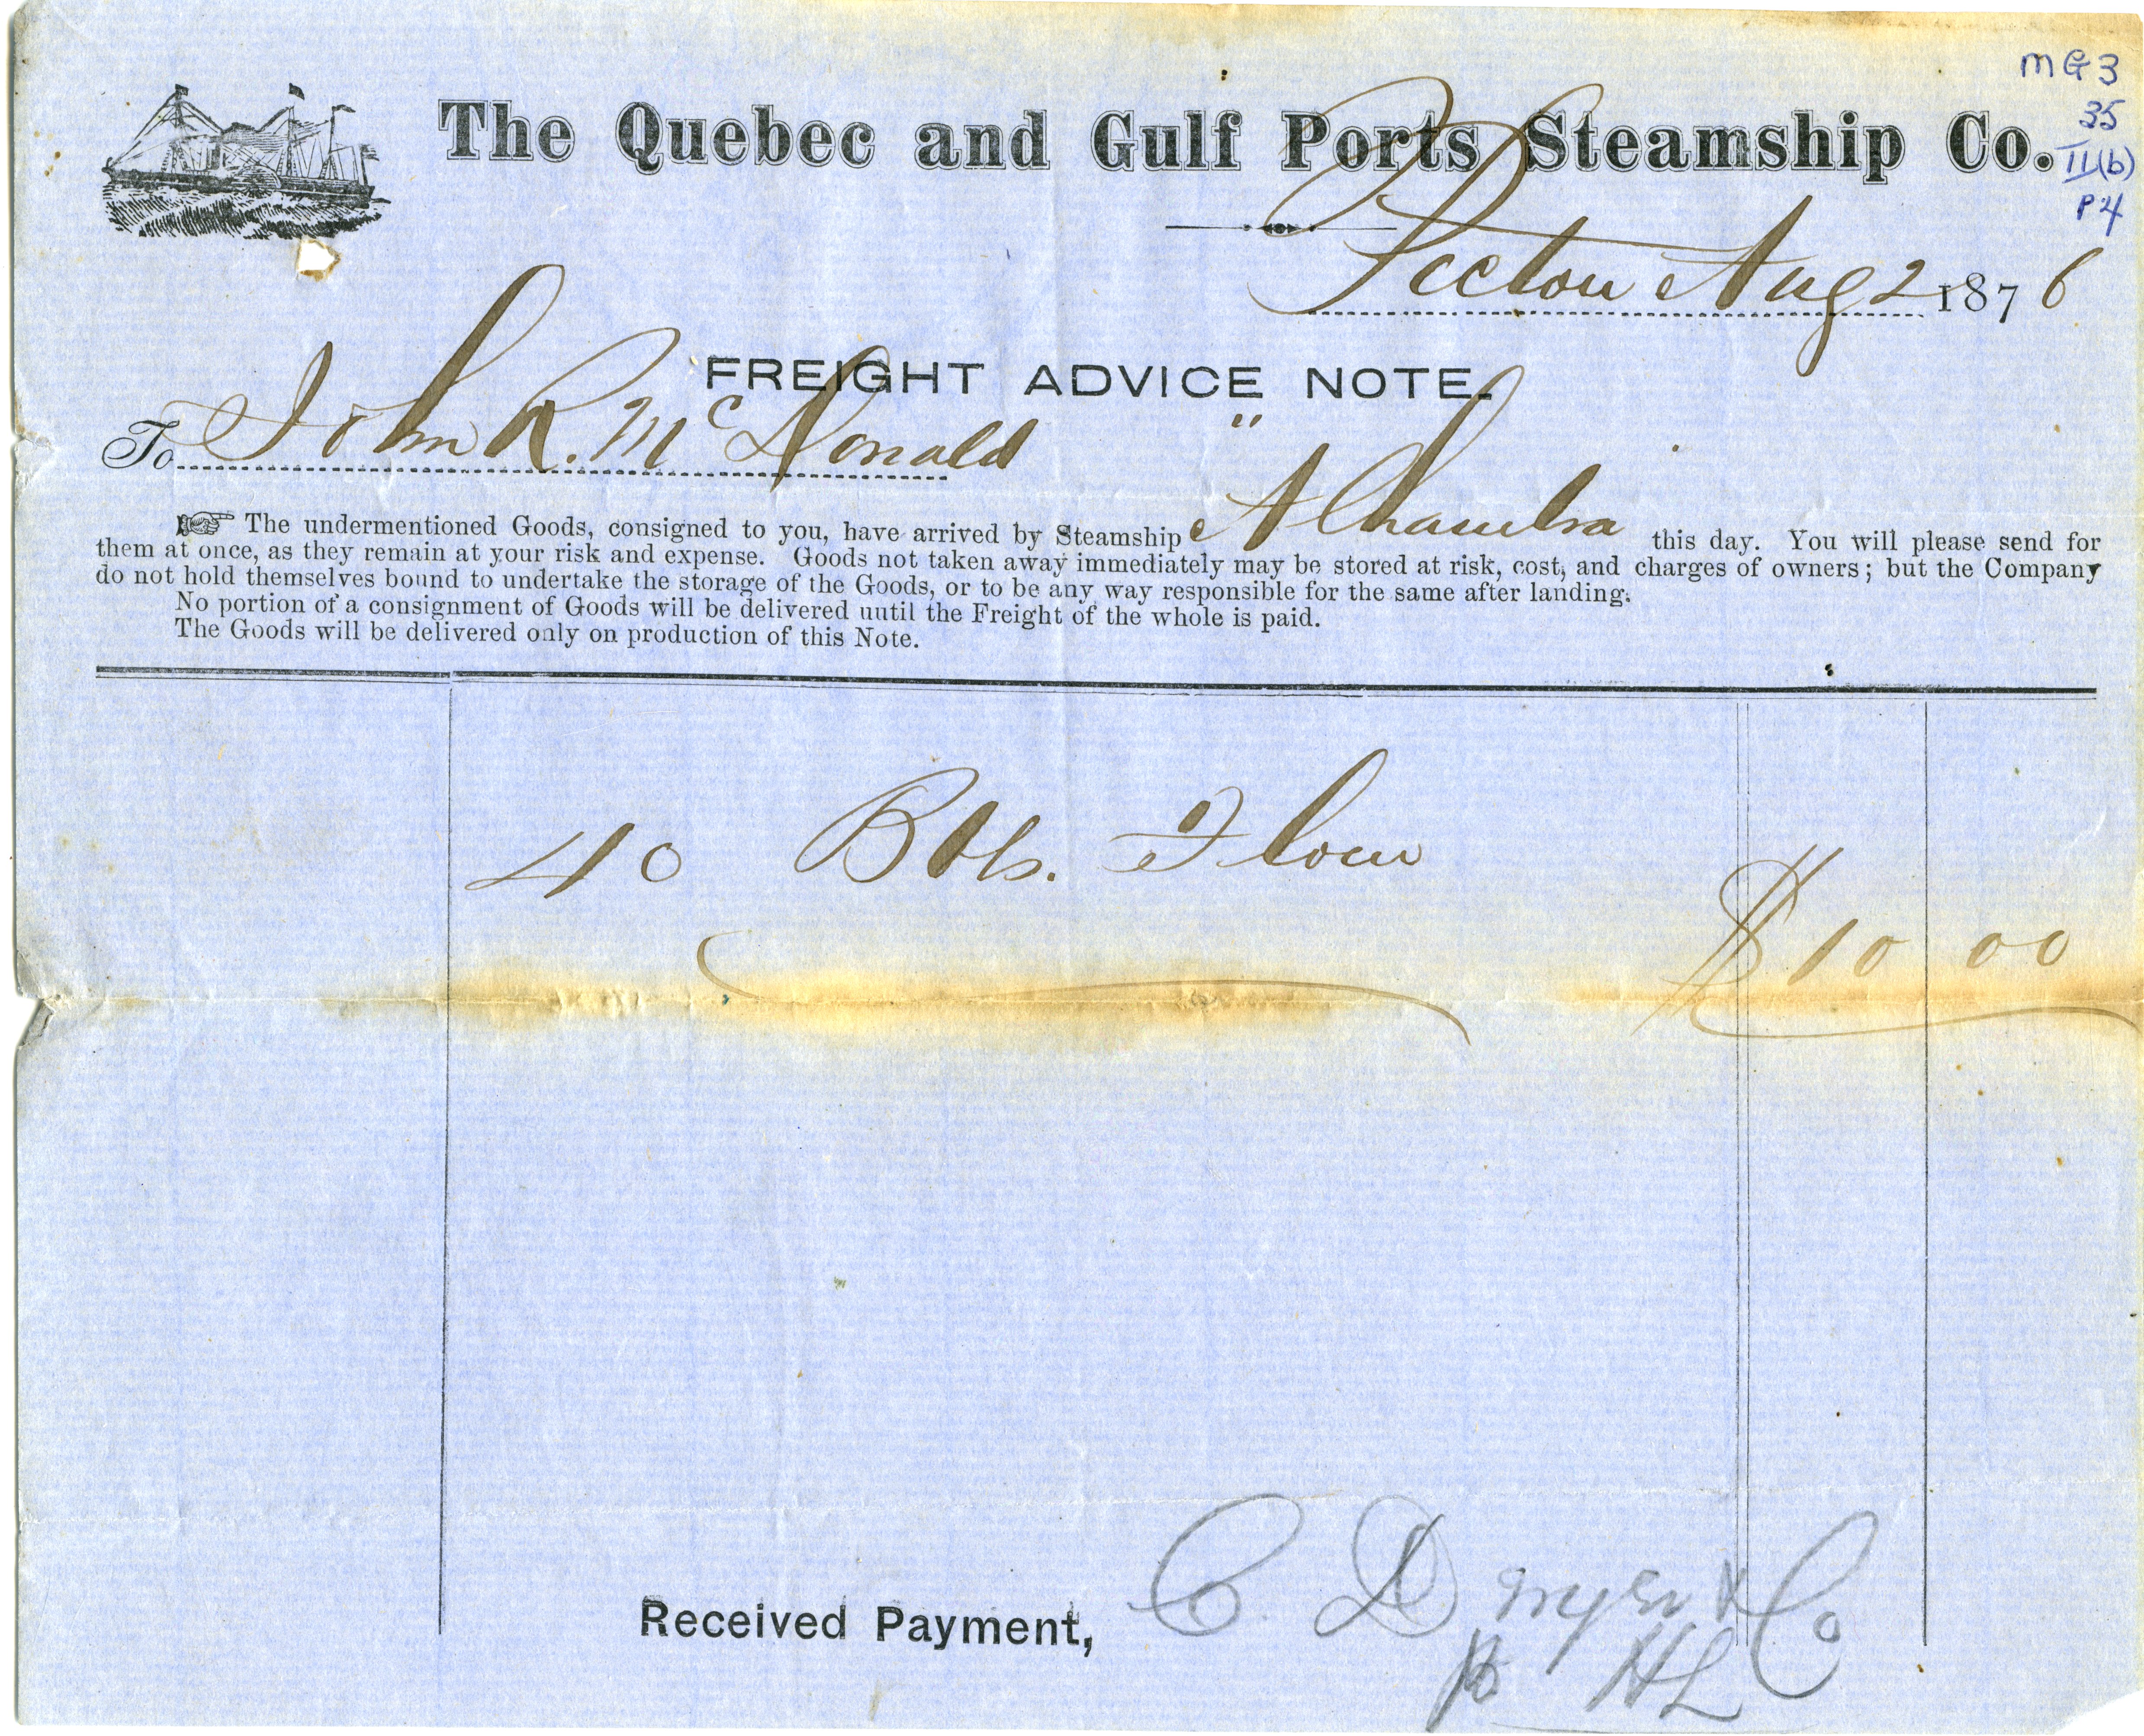 MG3
35
II(b)
P4
The Quebec and Gulf Ports Steamship Co.
Pictou Aug 2 1876
FREIGHT ADVICE NOTE.
To John R. McDonald
The undermentioned Goods, consigned to you, have arrived by Steamship "Alhambra" this day. You will please send for
them at once, as they remain at your risk and expense. Goods not taken away immediately may be stored at risk, cost, and charges of owners; but the Company
do not hold themselves bound to undertake the storage of the Goods, or to be any way responsible for the same after landing.
No portion of a consignment of Goods will be delivered until the Freight of the whole is paid.
The Goods will be delivered only on production of this Note.
40 Bbls. Flour
$10 00
Received Payment, C. Dwyer & Co
HL